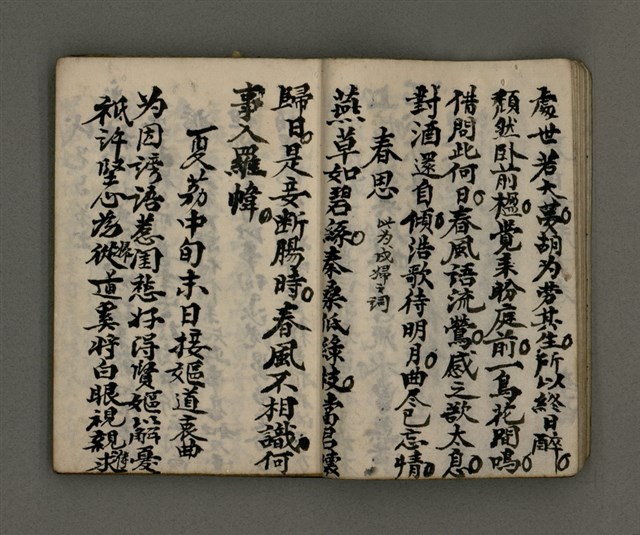 處世若大夢。胡为劳其生。所以終日醉。
頹然卧前楹。覺来盼庭前。一鳥花間鳴。
借問此何日。春風語流鶯。感之欲太息。
對酒還自傾。浩歌待明月。曲尽已忘情。
春思 此为戍婦之词
燕草如碧絲。秦桑低綠枝。當君懷
歸日。是妾断腸時。春風不相識。何
事入羅幃。
夏荔中旬末日接嫗道衷曲
为因誘语惹閨愁好得賢嫗以解憂
祇许堅心为從道莫将白眼視親求